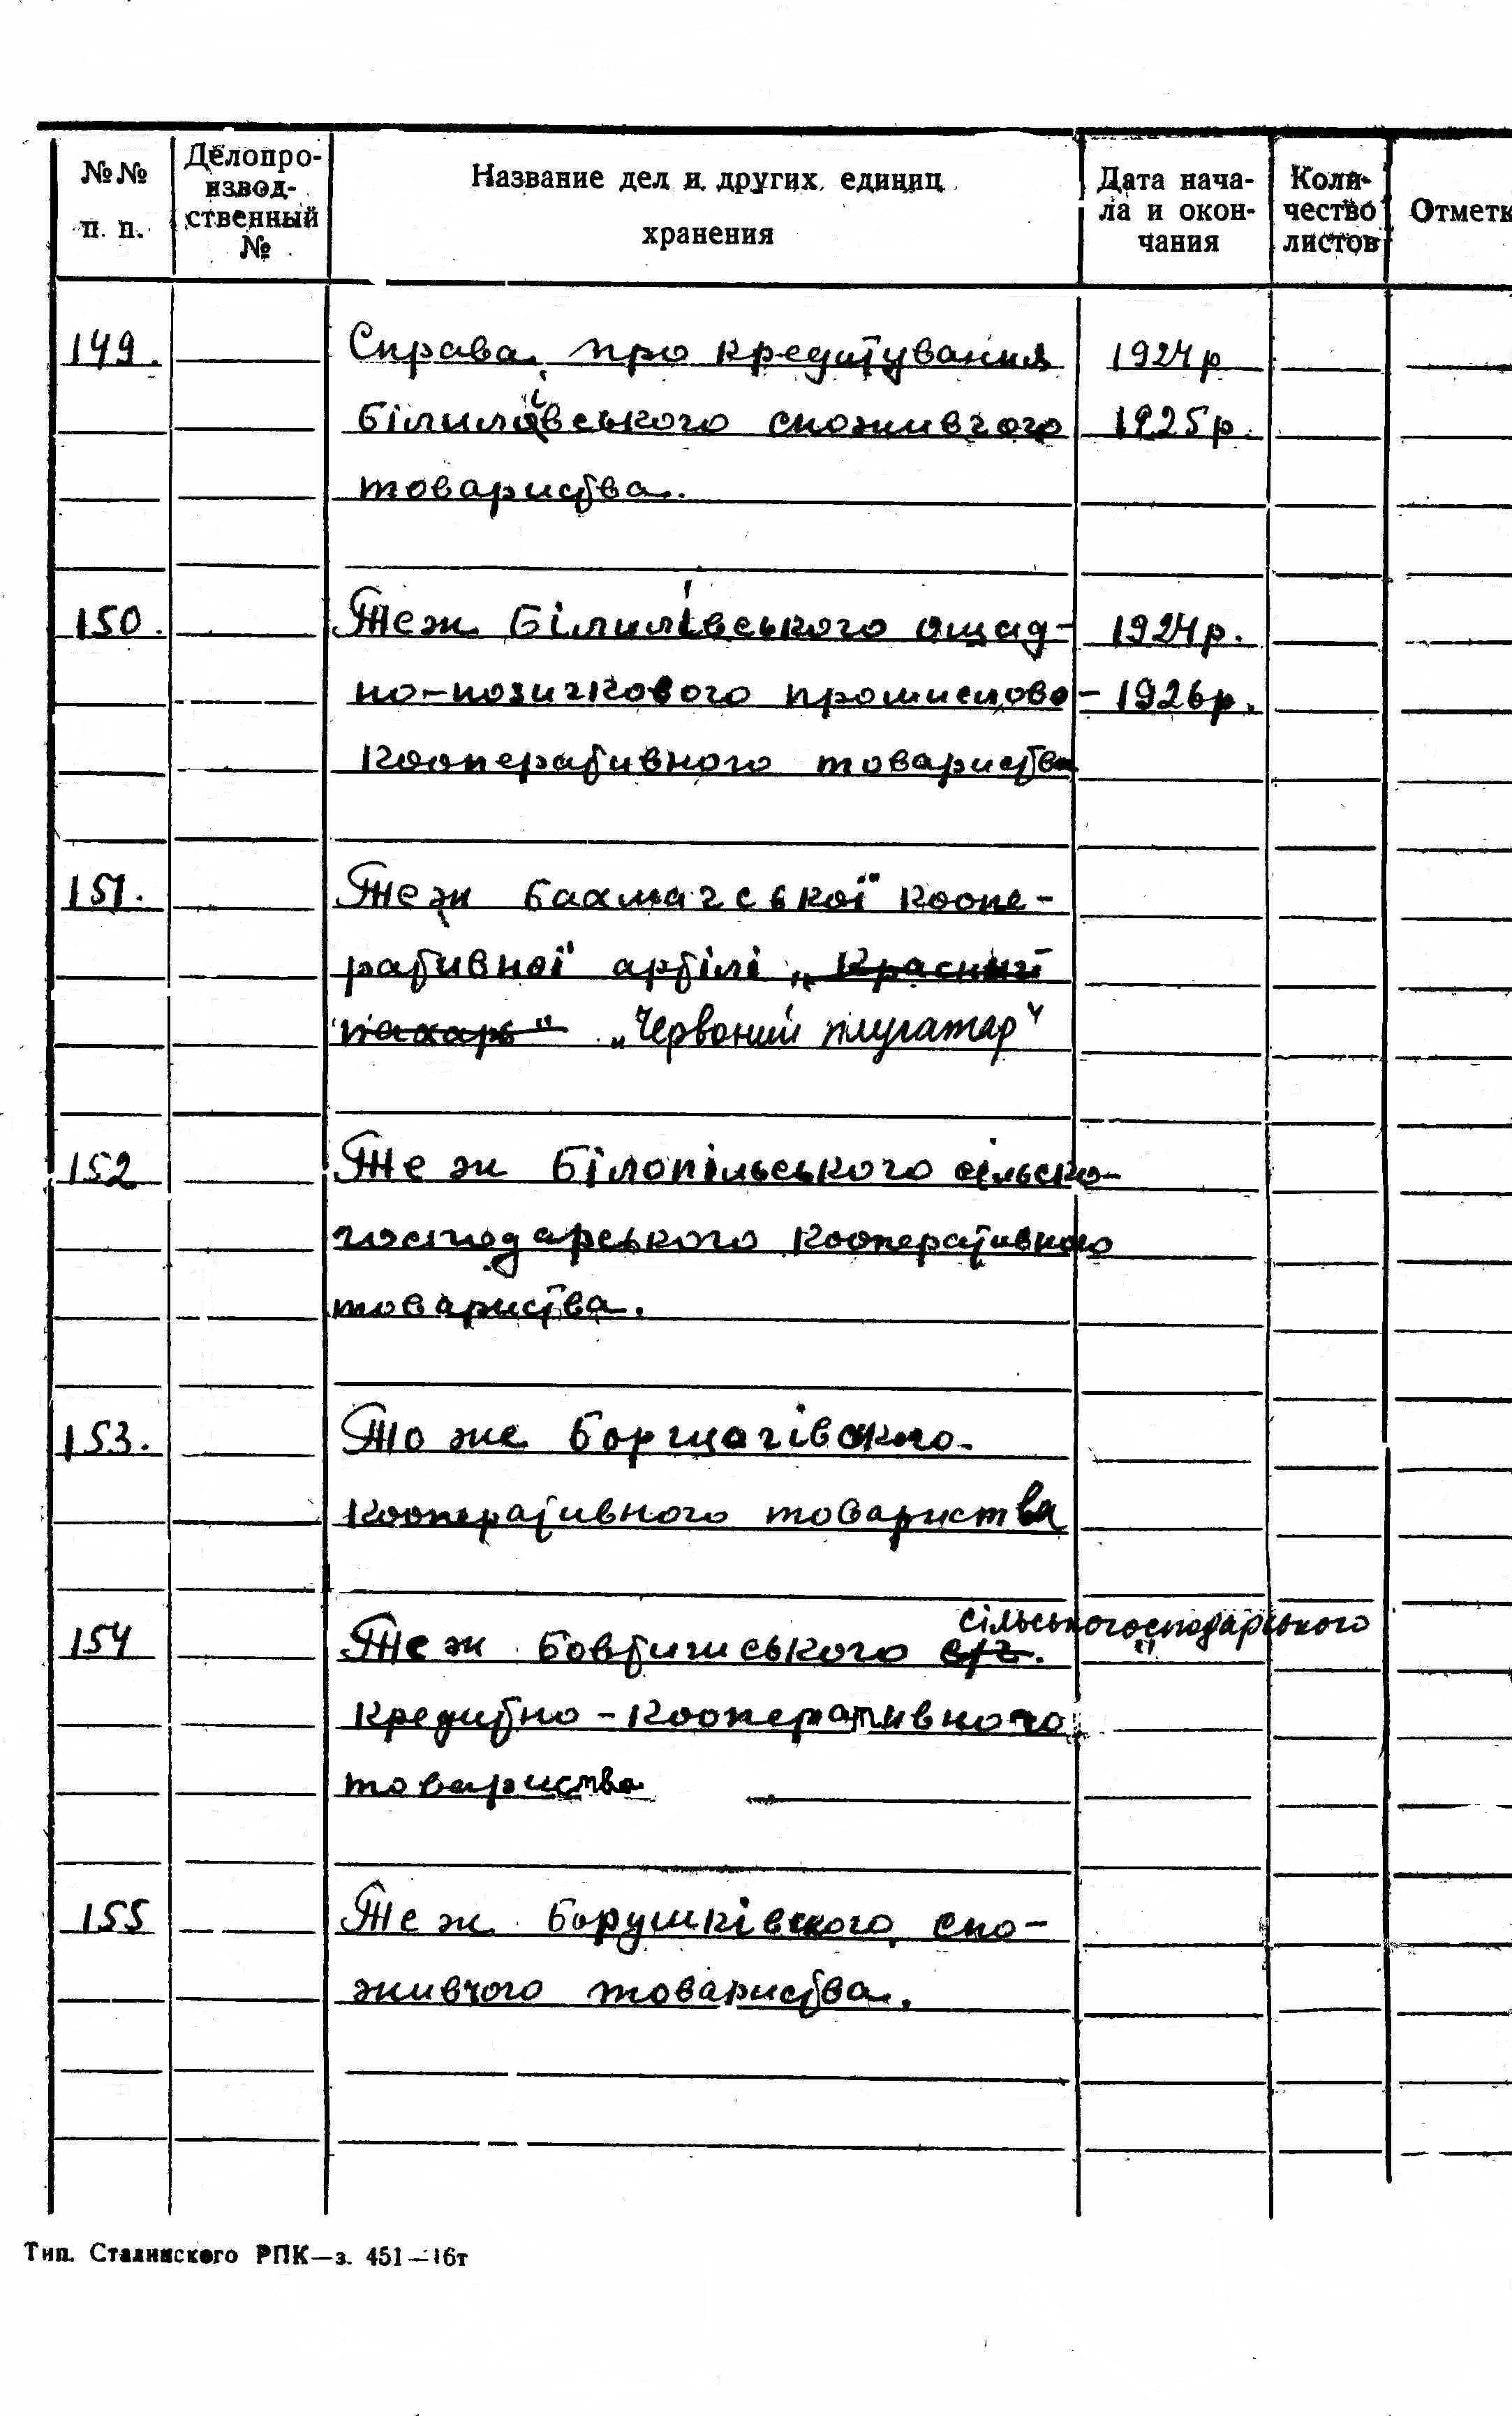 №№ п. п.
Делопро-
извод-
ственный
№
Название дел и других единиц
хранения
Дата нача-
ла и окон-
чания
Коли-
чество
листов
Отметк
149. Справа про кредитування 1924р
Білилівського споживчого 1925р.
товариства.
150. Теж Білилівського ощад- 1924р.
но-позичкового промислово- 1926р.
кооперативного товариства
151. Теж Бахмачської коопе-
ративної артілі „Красний
пахарь" „Червоний плугатар"
152 Теж Білопільського сільсько-
господарського кооперативного
товариства.
153. То же Борщагівского
кооперативного товариства
сільськогосподарського
154 Теж Бовтишського с/г. "
кредитно-кооперативного
товариства
155 Теж Борушківского спо-
живчого товариства.
Тип. Сталинского РПК—з. 451—16т